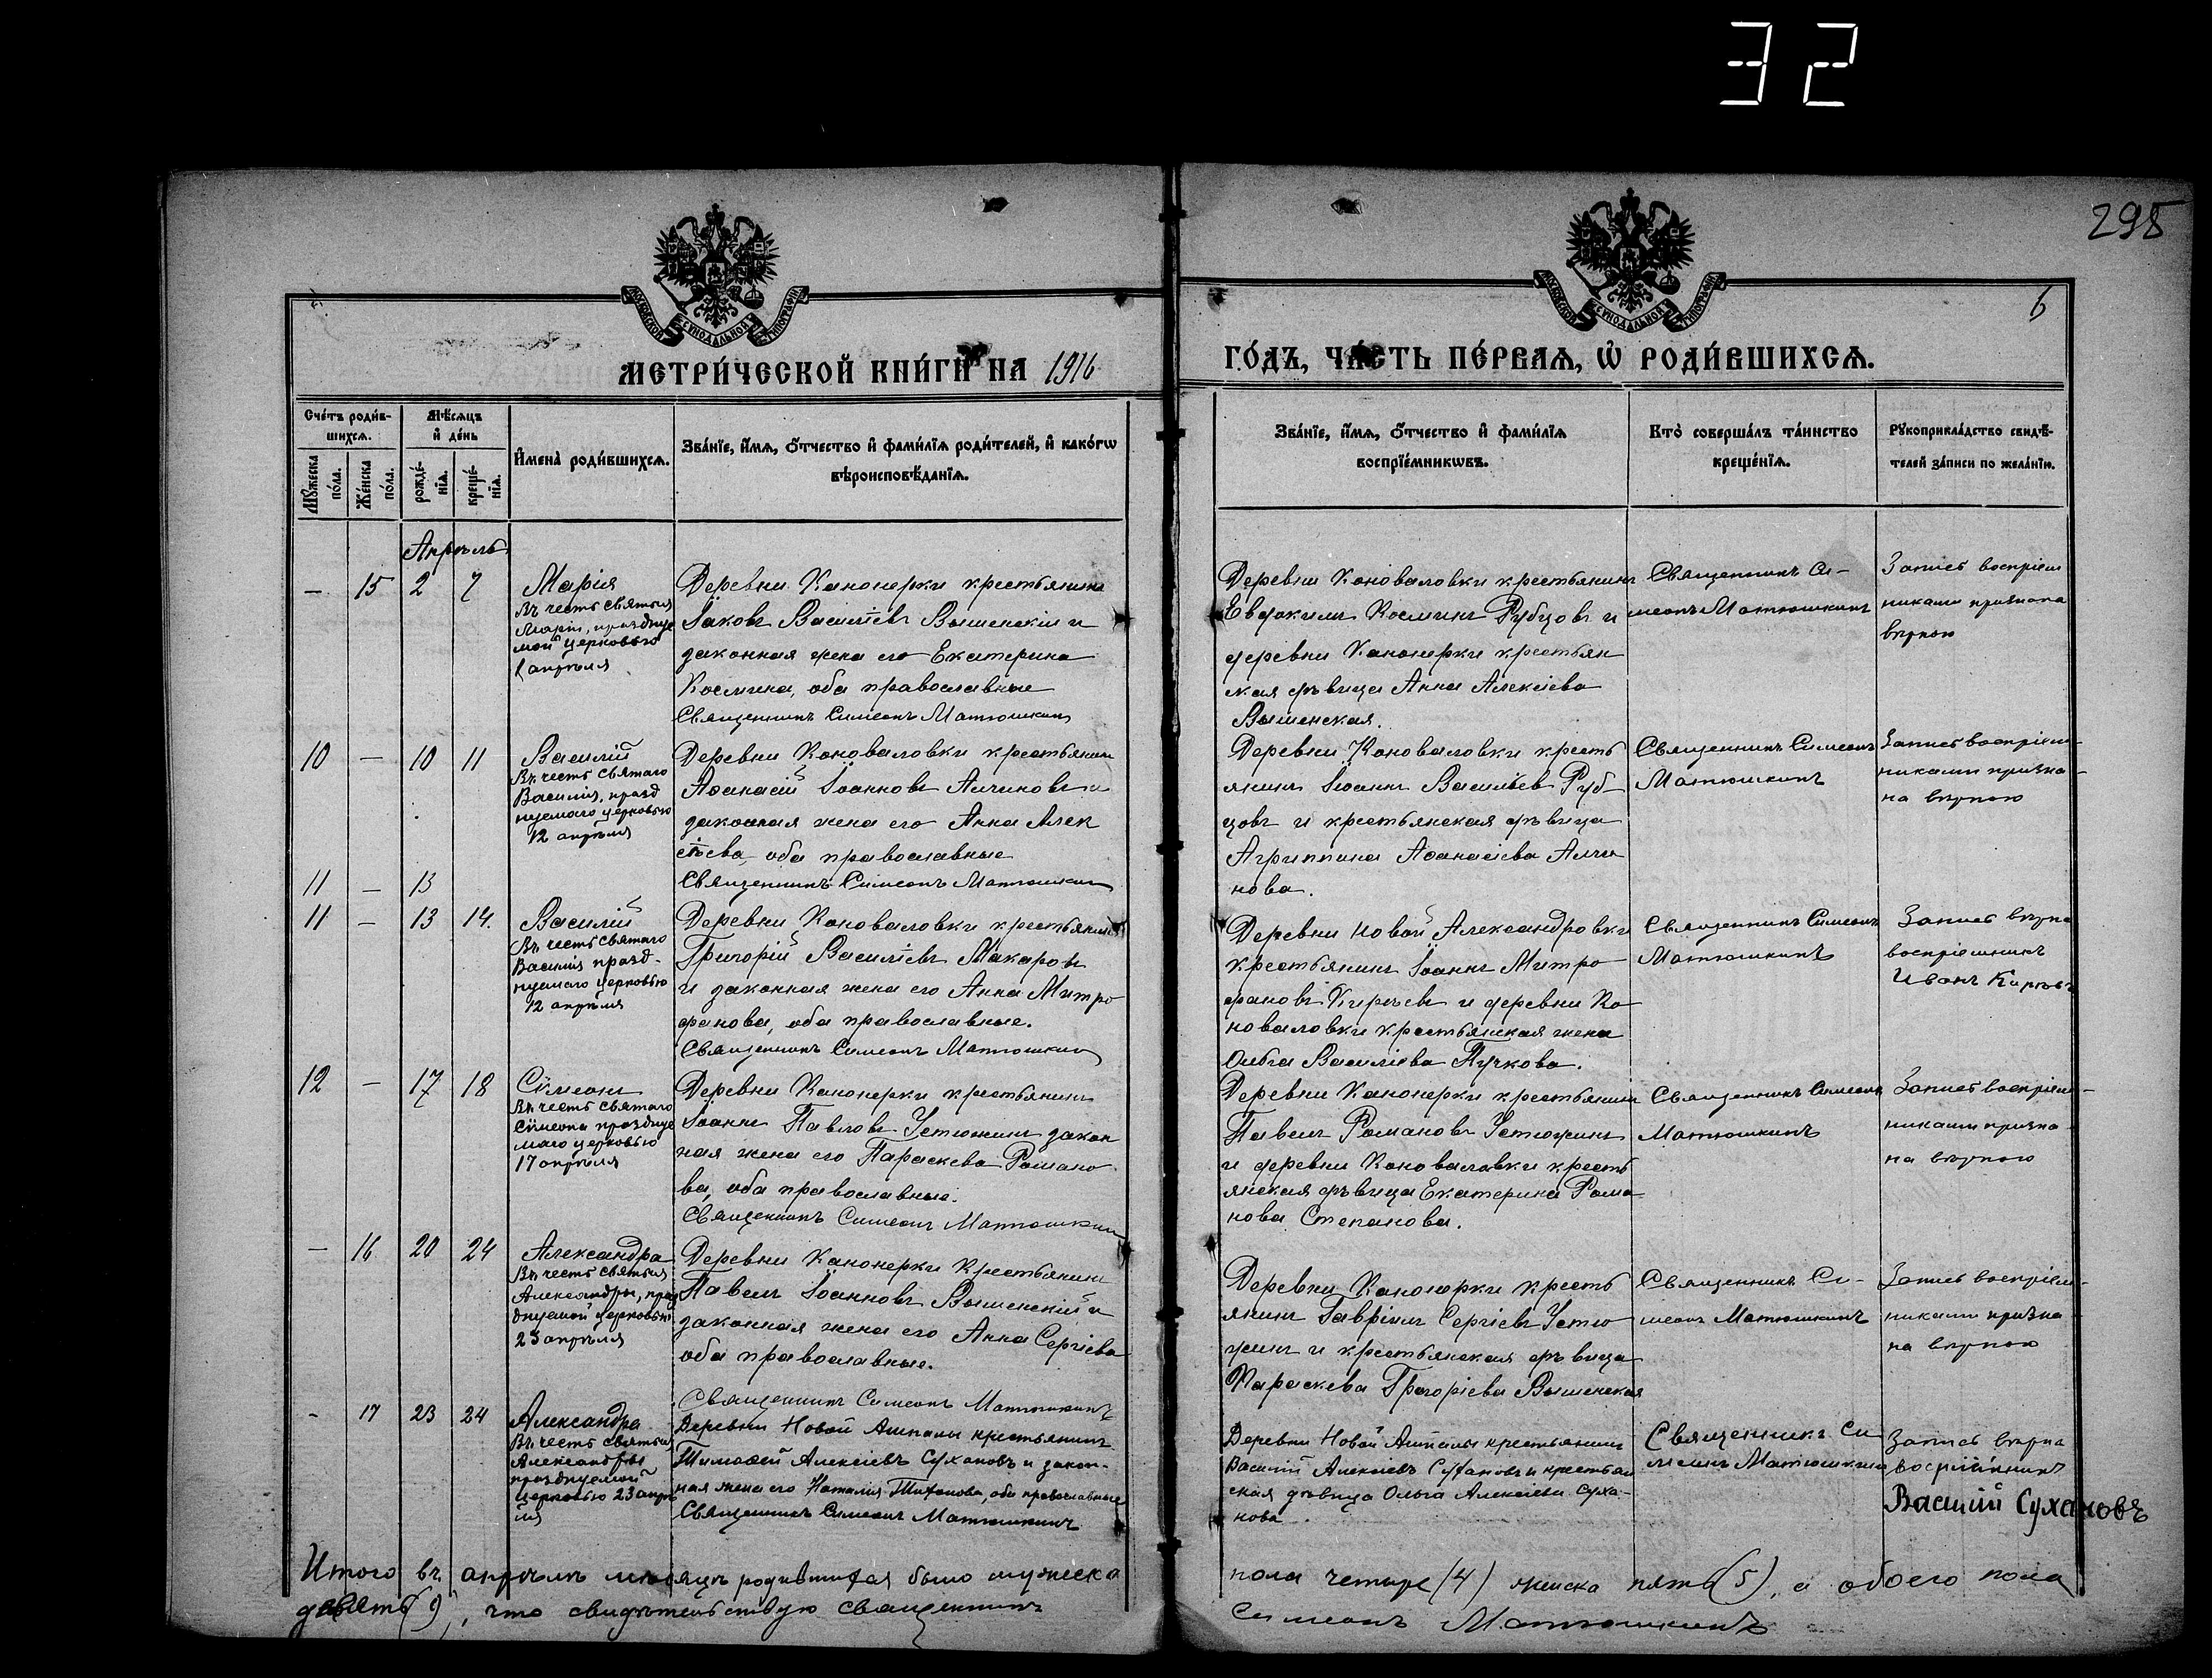 32
298
6
МОСКОВСКОЙ СѴНОДАЛЬНОЙ ТИПОГРАФІИ
МЕТРИ́ЧЕСКОЙ КНИ́ГИ НА 1916
МОСКОВСКОЙ СѴНОДАЛЬНОЙ ТИПОГРАФІИ
ГО́ДЪ, ЧА́СТЬ ПЕ́РВАЯ, Ѡ РОДИ́ВШИХСЯ.
Сче́тъ роди́в-
шихся.
Мꙋжеска по́ла.
Же́нска по́ла.
Мѣ́сяцъ
и де́нь
рожде́-
нія.
креще́-
нія.
Имена̀ роди́вшихся.
Зва́нїе, и́мя, ѻ́тчество и фами́лїя роди́телей, и како́гѡ
вѣроисповѣ́данїя.
Зва́нїе, и́мя, ѻ́тчество и фами́лїя
воспрїе́мникѡвъ.
Кто̀ соверша́лъ та́инство
креще́нїя.
Рꙋкоприкла́дство свидѣ́-
телей за́писи по жела́нїю.
Апрѣль
— 15 2 7
Марія
Въ честь святыя
Маріи, праздную
мой церковью
1 апрѣля
Деревни Канонерки крестьянинъ
Іаковъ Василіевъ Вышенскій и
законная жена его Екатерина
Космина, оба православные
Священникъ Симеонъ Матюшкинъ
Деревни Коноваловки крестьянинъ
Евдокимъ Косминъ Рубцовъ и
деревни Канонерки крестьян
ская дѣвица Анна Алексіева
Вышенская.
Священникъ Си-
меонъ Матюшкинъ
Запись воспріем
никами признана
вѣрною
10 — 10 11
Василій
Въ честь святаго
Василія, празд
нуемаго церковью
12 апрѣля
Деревни Коноваловки крестьянинъ
Аѳанасій Іоанновъ Алчиновъ и
законная жена его Анна Алек
сіева, оба православные
Священникъ Симеонъ Матюшкинъ
Деревни Коноваловки кресть
янинъ Іоаннъ Василіевъ Руб-
цовъ и крестьянская дѣвица
Агриппина Аѳанасіева Алчи
нова.
Священникъ Симеонъ
Матюшкинъ
Запись воспріем-
никами призна-
на вѣрною
11 — 13
11 — 13 14.
Василій
Въ честь святаго
Василія празд-
нуемаго церковью
12 апрѣля
Деревни Коноваловки крестьянинъ
Григорій Василіевъ Макаровъ
и законная жена его Анна Митро
фанова, оба православные.
Священникъ Симеонъ Матюшкинъ
Деревни Новой Александровки
крестьянинъ Іоаннъ Митро
фановъ Кирѣевъ и деревни Ко
новаловки крестьянская жена
Ольга Василіева Пучкова.
Священникъ Симеонъ
Матюшкинъ
Запись вѣрна
воспріемникъ
Иванъ Кирѣевъ
12 — 17 18
Симеонъ
Въ честь святаго
Симеона праздную
маго церковью
17 апрѣля
Деревни Канонерки крестьянинъ
Іоаннъ Павловъ Устюжинъ закон
ная жена его Параскева Романо
ва, оба православные.
Священникъ Симеонъ Матюшкинъ
Деревни Канонерки крестьянинъ
Павелъ Романовъ Устюжинъ
и деревни Коноваловки кресть
янская дѣвица Екатерина Рома
нова Степанова.
Священникъ Симеонъ
Матюшкинъ
Запись воспріем-
никами призна-
на вѣрною
— 16 20 24
Александра
Въ честь святыя
Александры, праз
днуемой церковью
23 апрѣля
Деревни Канонерки Крестьянинъ
Павелъ Іоанновъ Вышенскій и
законная жена его Анна Сергіева
оба православные.
Священникъ Симеонъ Матюшкинъ
Деревни Канонерки кресть
янинъ Гавріилъ Сергіевъ Устю
жинъ и крестьянская дѣвица
Параскева Григоріева Вышенская
Священникъ Си-
меонъ Матюшкинъ
Запись воспріем-
никами призна-
на вѣрною
- 17 23 24
Александра
Въ честь святыя
Александры
празднуемой
церковью 23 апрѣ
ля
Деревни Новой крестьянинъ
Тимоѳей Алексіевъ Сухановъ и закон-
ная жена его Наталія Тихонова, оба православные
Священникъ Симеонъ Матюшкинъ
Деревни Новой крестьянинъ
Василій Алексіевъ Сухановъ и крестьян
ская дѣвица Ольга Алексіева Суха-
нова.
Священникъ Си
меонъ Матюшкинъ
Запись вѣрна
воспріемникъ
Василій Сухановъ
Итого въ апрѣлѣ мѣсяцѣ родившихся было мужеска
пола четыре (4) женска пять (5), а обоего пола
девять (9), что свидѣтельствую священникъ
Симеонъ Матюшкинъ